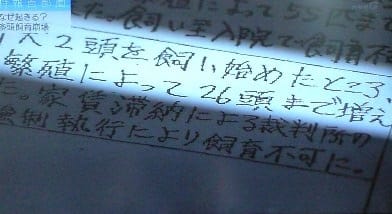 なぜ起きる?
多頭飼育崩壊
た。飼い主入院で飼育不
犬2頭を飼い始めたところ
繁殖によって26頭まで増え
た。家賃滞納による裁判所の
強制執行により飼育不可に。